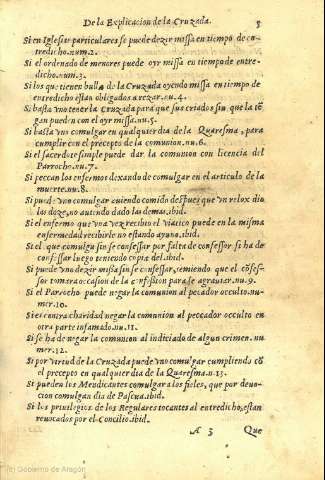 De la Explicacion de la Cruzada. 5
Si en Iglesias particulares se puede dezir missa en tiempo de en-
tredicho.num.2.
Si el ordenado de menores puede oyr missa en tiempo de entre-
dicho.num.3.
Si los que tienen bulla de la Cruzada oyendo missa en tiempo de
entredicho estan obligados a rezar.nu.4.
Si basta vno tener la Cruzada para que sus criados sin que la tẽ-
gan puedan con el oyr missa.nu.5.
Si basta vno comulgar en qualquier dia de la Quaresma, para
cumplir con el precepto de la comunion.nu.6.
Si el sacerdote simple puede dar la comunion con licencia del
Parrocho.nu.7.
Si peccan los enfermos dexando de comulgar en el articulo de la
muerte.nu.8.
Si puede vno comulgar auiendo comido despues que vn relox dio
las doze, no auiendo dado las demas.ibid.
Si el enfermo que vna vez recibio el viatico puede en la misma
enfermedad recibirle no estando ayuno.ibid.
Si el que comulgu sin se confessar por falta de confessor se ha de
confessar luego teniendo copia del.ibid.
Si puede vno dezir missa sin se confessar, temiendo que el cõfes-
sor tomara occasion de la confission para se agrauiar.nu.9.
Si el Parrocho puede negar la comunion al peccador occulto.nu
mer.10.
Si es contra charidad negar la comunion al peccador occulto en
otra parte infamado.nu.11.
Si se ha de negar la comunion al indiciado de algun crimen. nu
mer.12.
Si por virtud de la Cruzada puede vno comulgar cumpliendo cõ
el precepto en qualquier dia de la Quaresma.n.13.
Si pueden los Mendicantes comulgar a los fieles, que por deuo-
cion comulgan dia de Pascua.ibid.
Si los priuilegios de los Regulares tocantes al entredicho, estan
reuocados por el Concilio.ibid.
A 3 Que
(c) Gobierno de Aragón